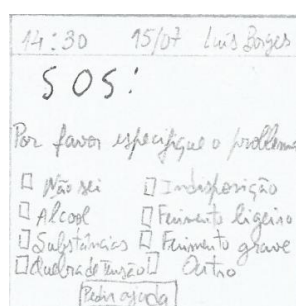 14:30 15/07 Luís Borges
SOS:
Por favor especifique o problema
Não sei Indisposição
Alcool Ferimento ligeiro
Substâncias Ferimento grave
Quebra de Tensão Outro
Pedir ajuda